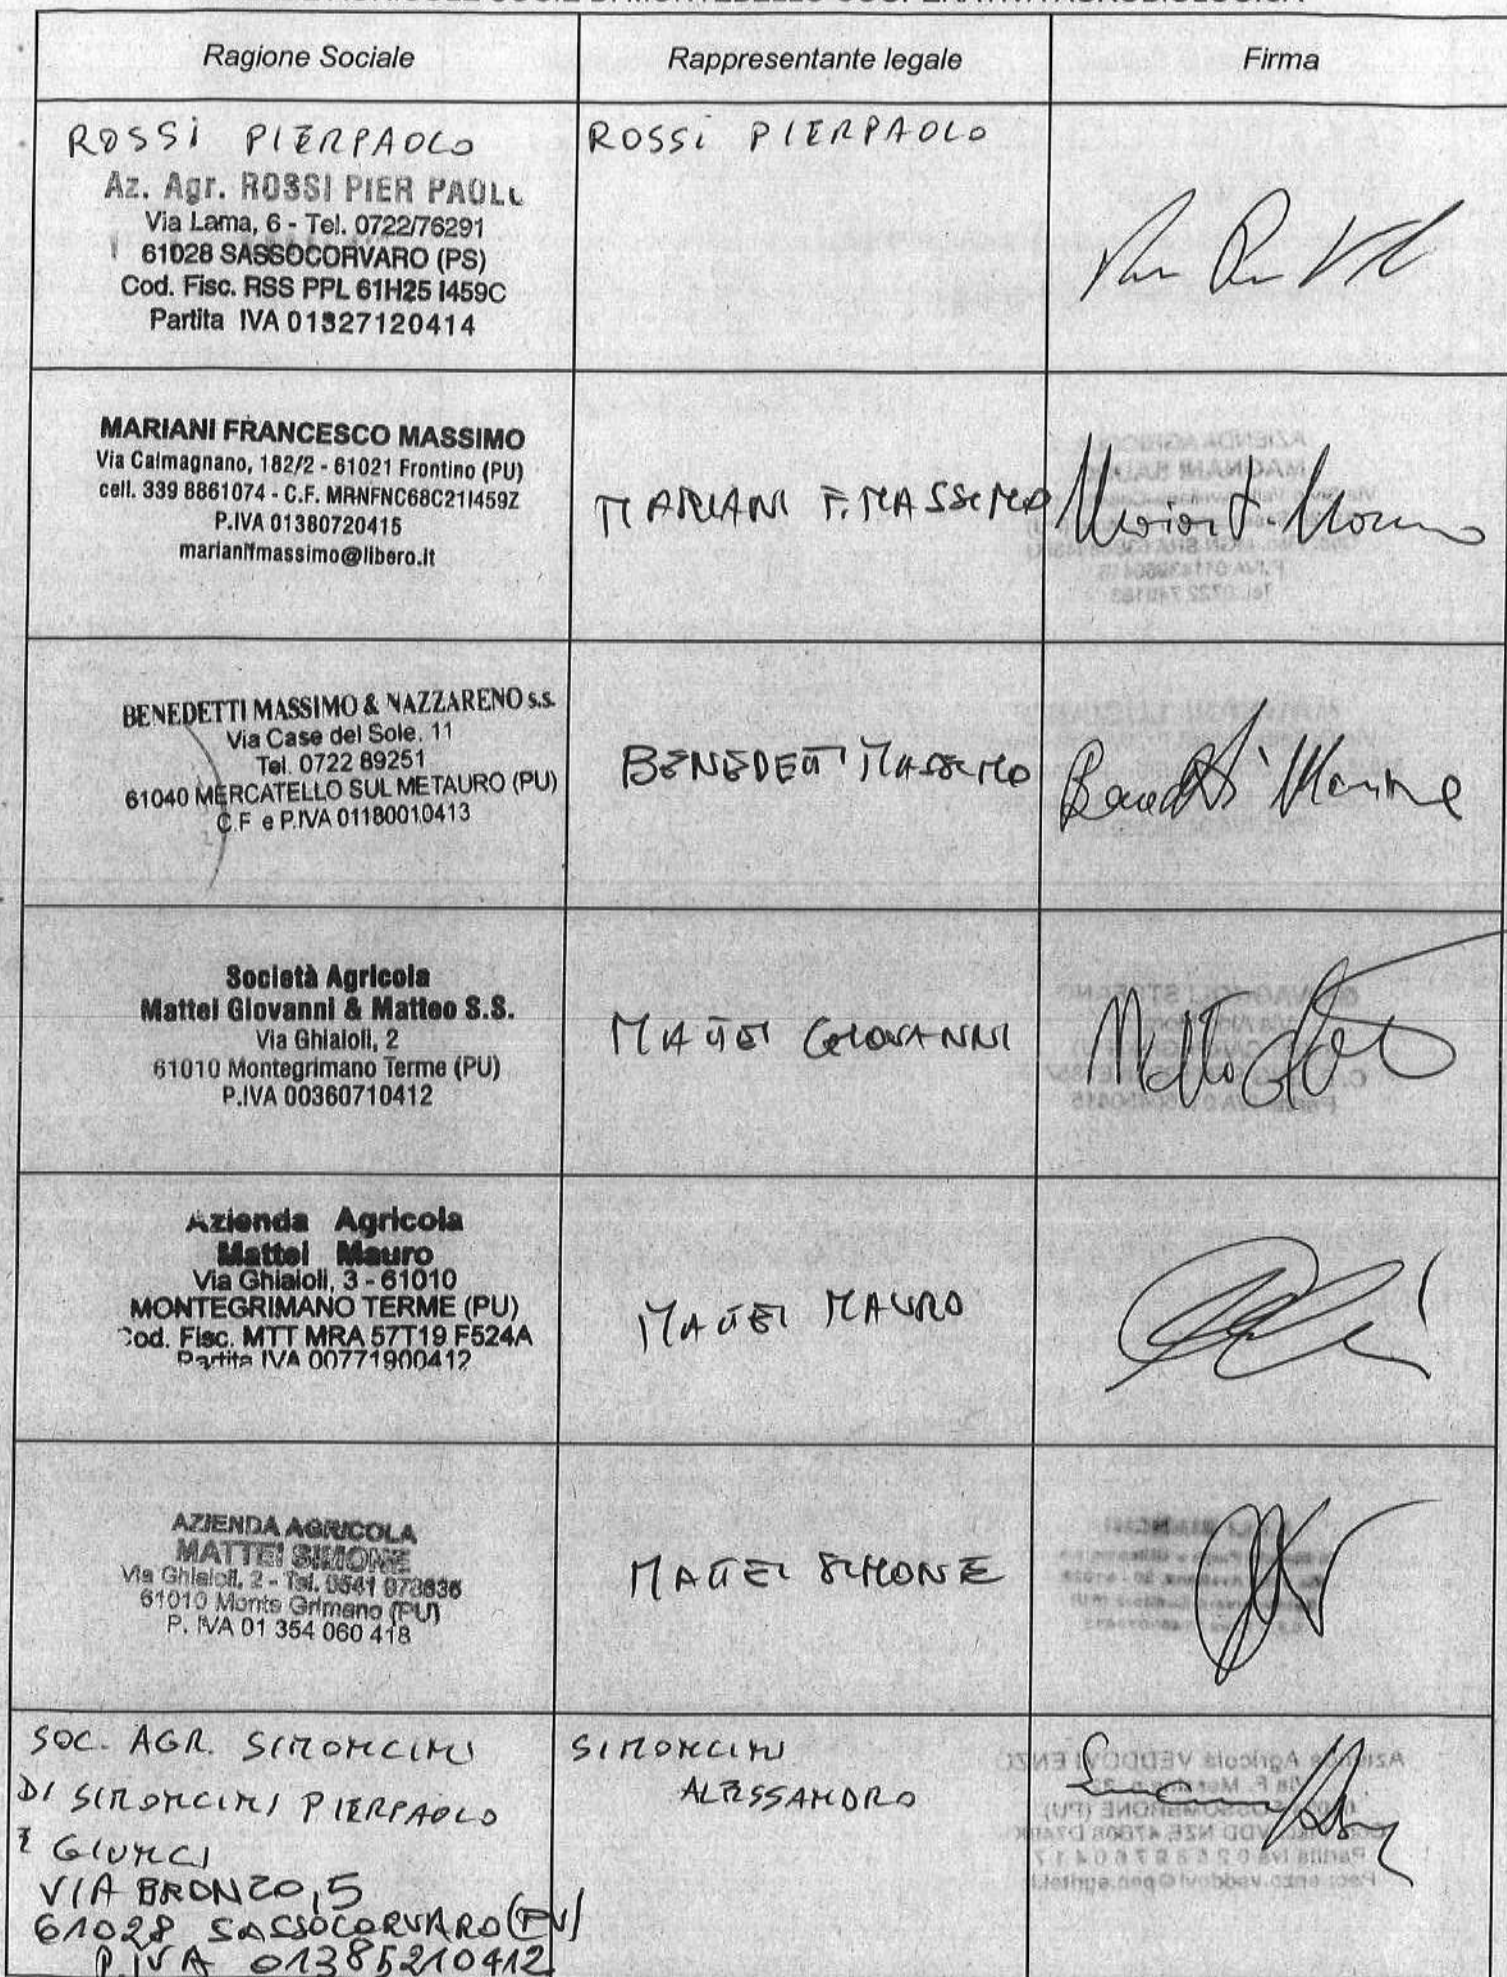 Ragione Sociale
Rappresentante legale
Firma
ROSSI PIERPAOLO
Az. Agr. ROSSI PIER PAOLO
Via Lama, 6 - Tel. 0722/76291
61028 SASSOCORVARO (PS)
Cod. Fisc. RSS PPL 61H25 I459C
Partita IVA 01327120414
ROSSI PIERPAOLO
MARIANI FRANCESCO MASSIMO
Via Calmagnano, 182/2 - 61021 Frontino (PU)
cell. 339 8861074 - C.F. MRNFNC68C21I459Z
P.IVA 01380720415
marianifmassimo@libero.it
MARIANI F. MASSIMO
BENEDETTI MASSIMO & NAZZARENO s.s.
Via Case del Sole, 11
Tel. 0722 89251
61040 MERCATELLO SUL METAURO (PU)
C.F e P.IVA 01180010413
BENEDETTI MASSIMO
Società Agricola
Mattei Giovanni & Matteo S.S.
Via Ghialoli, 2
61010 Montegrimano Terme (PU)
P.IVA 00360710412
MATTEI GIOVANNI
Azienda Agricola
Mattei Mauro
Via Ghiaioli, 3 - 61010
MONTEGRIMANO TERME (PU)
Cod. Fisc. MTT MRA 57T19 F524A
Partita IVA 00771900412
MATTEI MAURO
AZIENDA AGRICOLA
MATTEI SIMONE
Via Ghiaioli, 2 - Tel. 0541
61010 Monte Grimano (PU)
P. IVA 01 354 060 418
MATTEI SIMONE
SOC. AGR. SIMONCINI
DI SIMONCINI PIERPAOLO
E GIUNCI
VIA BRONZO, 5
61028 SASSOCORVARO (PU)
P.IVA 01385210412
SIMONCINI
ALESSANDRO